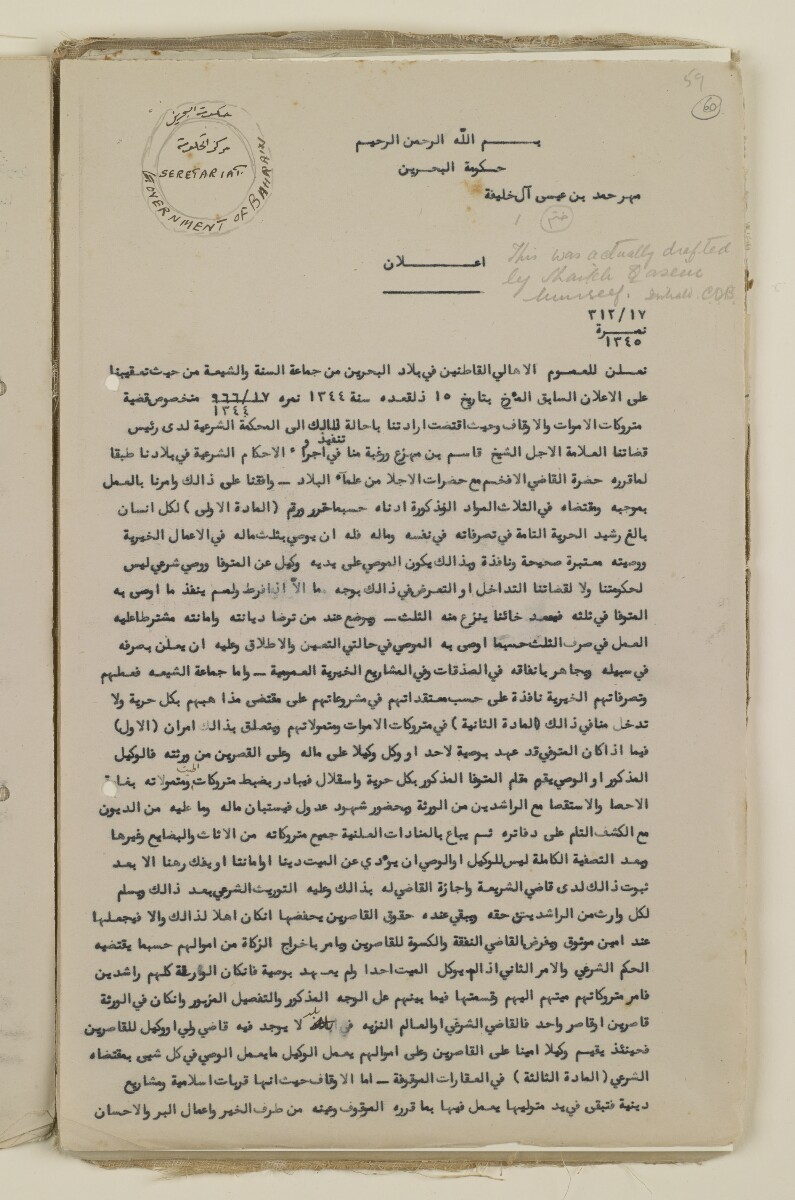 59
60
حكومة البحرين
مركز الحكومة
SERETARIAT.
GOVERNMENT OF BAHRAIN
بسم الله الرحمن الرحيم
حكومة البحرين
مهر حمد بن عيسى آل خليفة
ختم
This was actually drafted
by Shaikh Qasim
himself. Initials C.D.B.
اعلان
٣١٢/١٧
نمرة
١٣٤٥
نعلن للعموم الاهالي القاطنين في بلاد البحرين من جماعة السنة والشيعة من حيث تعقيبنا
على الاعلان السابق المؤرخ بتاريخ ١٥ ذلقعده سنة ١٣٤٤ نمره ٩٦٦/١٧ منخصوص قضية
١٣٤٤
متروكات الاموات والاوقاف وحيث اقتضت ارادتنا باحالة ذالك الى المحكمة الشرعية لدى رئيس
قضاتنا العلامة الاجل الشيخ قاسم بن مهزع ورغبة منا في اجراء وتنفيذ الاحكام الشرعية في بلادنا طبقا
لما قرره حضرة القاضي الافخم مع حضرات الاجلا من علماء البلاد ــ وافقنا على ذالك وامرنا بالعمل
بموجبه ومقتضاه في الثلاث المواد المذكورة ادناه حسبما حرر ورقم (المادة الاولى) لكل انسان
بالغ رشيد الحرية التامة في تصرفاته في نفسه وماله فله ان يوصي بثلث ماله في الاعمال الخيرية
ووصيته معتبرة صحيحة ونافذة وبذالك يكون الموصى على يديه وكيل عن المتوفا ووصي شرعي ليس
لحكومتنا ولا لقضاتنا التداخل او التعرض في ذالك بوجه ما الاّ اذا فرط ولم ينفذ ما اوصى به
المتوفا في ثلثه فيعد خائنا ينزع منه الثلث ــ ويوضع عند من ترضا ديانته وامانته مشترطا عليه
العمل في صرف الثلث حسبما اوصى به الموصي في حالتي التعين والاطلاق وعليه ان يعلن بصرفه
في سبيله ويجاهر بانفاقه في الصدقات وفي المشاريع الخيرية العمومية ــ واما جماعة الشيعه فعملهم
وتصرفاتهم الخيرية نافذة على حسب معتقداتهم في مشروعاتهم على مقتضى مذاهبهم بكل حرية ولا
تدخل منا في ذالك (المادة الثانية) في متروكات الاموات ومتمولاتهم ويتعلق بذالك امران (الاول)
فيما اذا كان المتوفي قد عهد بوصية لاحد او وكل وكيلا على ماله وعلى القصرين من ورثته فالوكيل
المذكور او الوصي يقوم مقام المتوفا المذكور بكل حرية واسقلال فيبادر بضبط متروكات الميت ومتمولاته بغاية
الاحصا والاستقصا مع الراشدين من الورثة وبحضور شهود عدول فيستبان ماله وما عليه من الديون
مع الكشف التام على دفاتره ثم يباع بالمنادات العلنية جميع متروكاته من الاثاث والبضايع وغيرها
وبعد التصفية الكاملة ليس للوكيل او الوصي ان يوٴدي عن الميت دينا او امانتا او يفك رهنا الا بعد
ثبوت ذالك لدى قاضي الشريعة واجازة القاضي له بذالك وعليه التوريث الشرعي بعد ذالك ويسلم
لكل وارث من الراشدين حقه ويبقى عنده حقوق القاصرين يحفضها انكان اهلا لذالك والا فيجعلها
عند امين موثوق ويفرض القاضي النفقة والكسوة للقاصرين ويامر باخراج الزكاة من اموالهم حسبما يقتضيه
الحكم الشرعي والامر الثاني اذا لم يوكل الميت احدا ولم يعهد بوصية فانكان الوارثة كلهم راشدين
فامر متروكاتهم ميتهم اليهم وقسمتها فيما بينهم على الوجه المذكور والتفصيل المزبور وانكان في الورثة
قاصرين او قاصر واحد فالقاضي الشرعي او العالم النزيه في بلد لا يوجد فيه قاضي ولي او وكيل للقاصرين
فحينئذ يقيم وكيلا امينا على القاصرين وعلى اموالهم يعمل الوكيل ما يعمل الوصي في كل شيى بمقتضاه
الشرعي (المادة الثالثة) في العقارات الموقوفة ــ اما الاوقاف حيث انها قربات اسلامية ومشاريع
دينية فتبقى في يد متوليها يعمل فيها بما قرره الموقوف وعينه من طرف الخير واعمال البر والاحسان